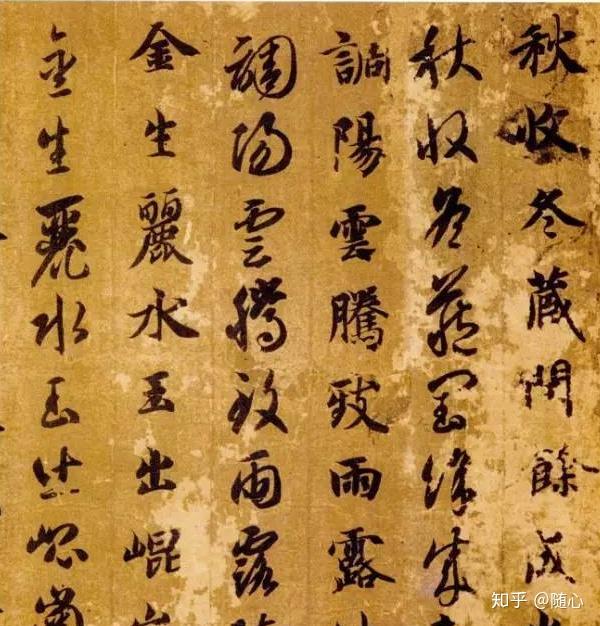 秋收冬藏閏餘成
秋收冬藏閏餘成
調陽雲騰致雨露
調陽雲騰致雨露
金生麗水玉出崐
金生麗水玉出崐崗
知乎 @随心